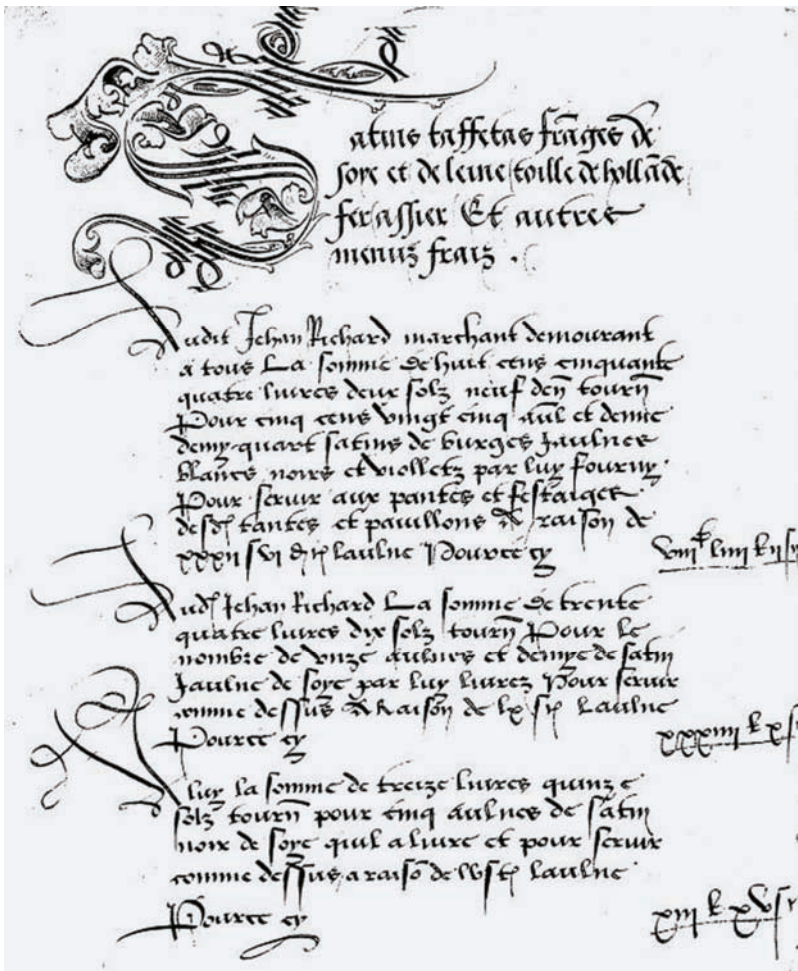 Satins taffetas franges de
soye et de leine toille de hollande
fer assier Et autres
menuz fraiz .
Audit Jehan Richard marchant demourant
a tours La somme de huit cens cinquante
quatre livres deux solz neuf den tourn
Pour cinq cens vingt cinq aul et demie
demy quart satins de burges Jaulnes
blancs noirs et violletz par luy fourny
Pour servir aux pantes et festaiges
desd tantes et pavillons A raison de
xxxii s vi d t laulne Pource cy
viii^c liiii l ii s
Aud Jehan Richard La somme de trente
quatre livres dix solz tourn Pour le
nombre de unze aulnes et demye de satin
Jaulne de soye par luy livrez Pour servir
comme dessus A Raison de lx s t Laulne
Pource cy
xxxiiii l x s
A luy la somme de treize livres quinze
solz tourn pour cinq aulnes de satin
noir de soye quil a livre et pour servir
comme dessus a raison de lv s t laulne
Pource cy
xiii l xv s